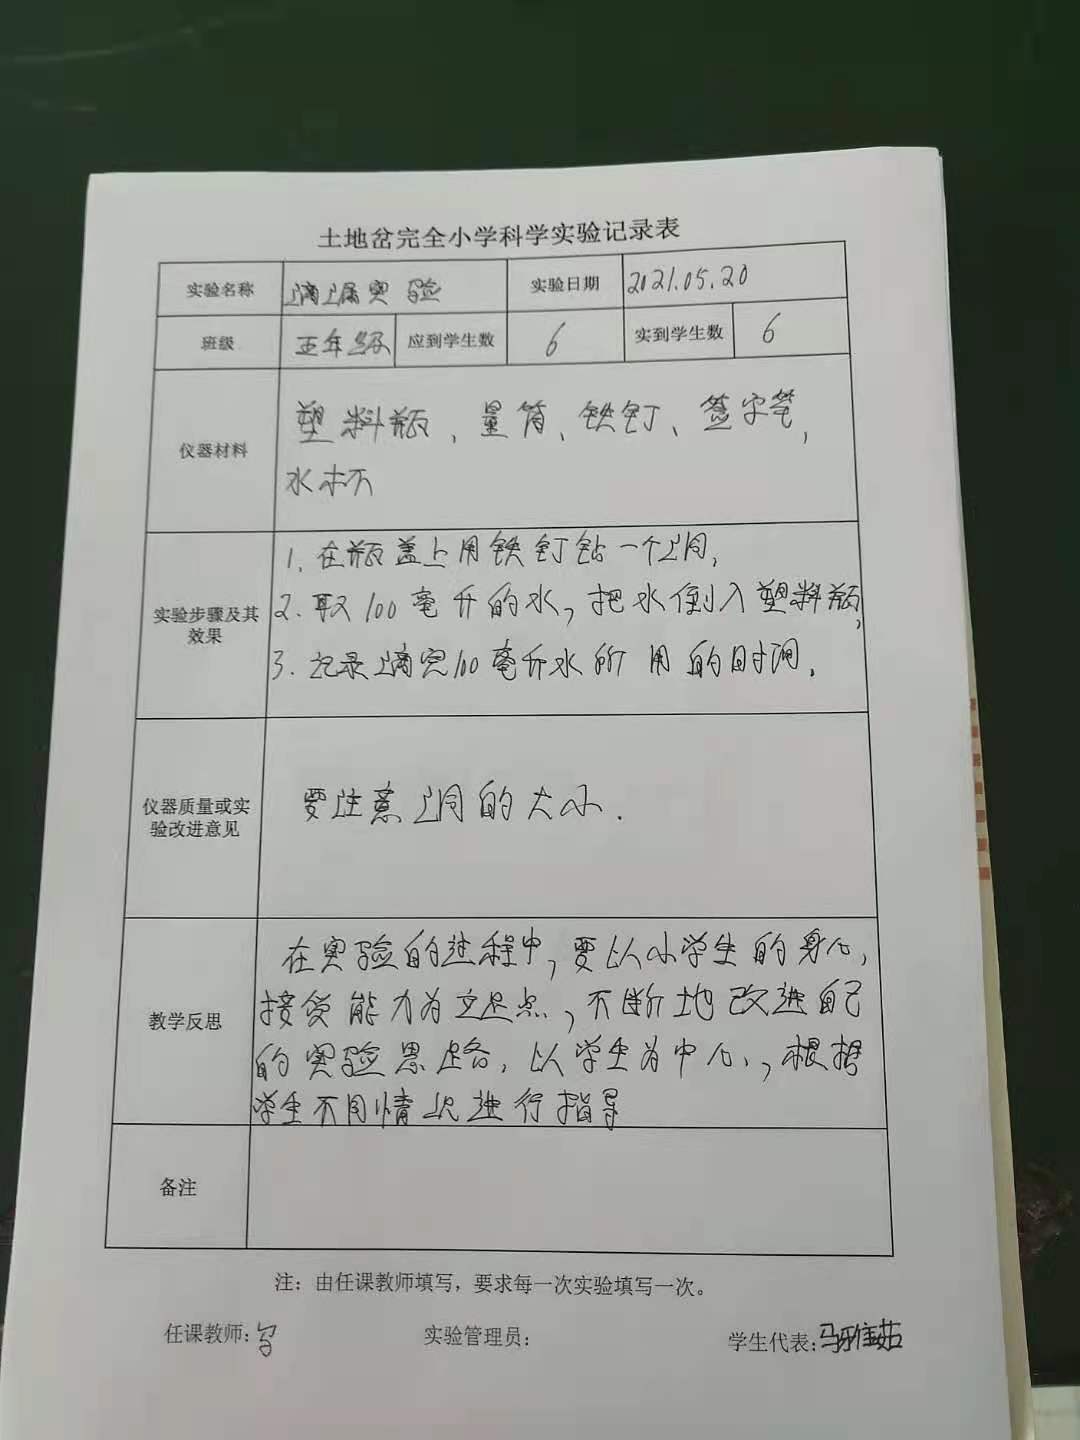 土地岔完全小学科学实验记录表
实验名称 滴漏实验 实验日期 2021.05.20
班级 五年级 应到学生数 6 实到学生数 6
塑料瓶、量筒、铁钉、签字笔,
仪器材料
水杯
1. 在瓶盖上用铁钉钻一个洞,
2. 取100毫升的水,把水倒入塑料瓶,
实验步骤及其
效果
3. 记录滴完100毫升水所用的时间.
仪器质量或实
验改进意见
要注意洞的大小.
在实验的过程中,要以小学生的身心,
接受能力为立足点,不断地改进自己
教学反思
的实验思路,以学生为中心,根据
学生不同情况进行指导
备注
注：由任课教师填写，要求每一次实验填写一次。
任课教师: 实验管理员: 学生代表:马雅茹